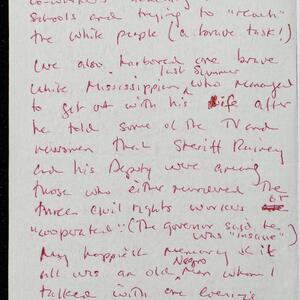 schools and trying to "reach"
the white people (a brave task!)
We also harbored one brave
last summer
white Mississippian, who managed
to get out with his life after
he told some of the TV and
newsmen that Sheriff Rainey
and his Deputy were among
those who either murdered the
three civil rights workers or
"cooperated". (The governor said he
was "insane")
My happiest memory of it
Negro
all was an old man whom I
talked with one evening